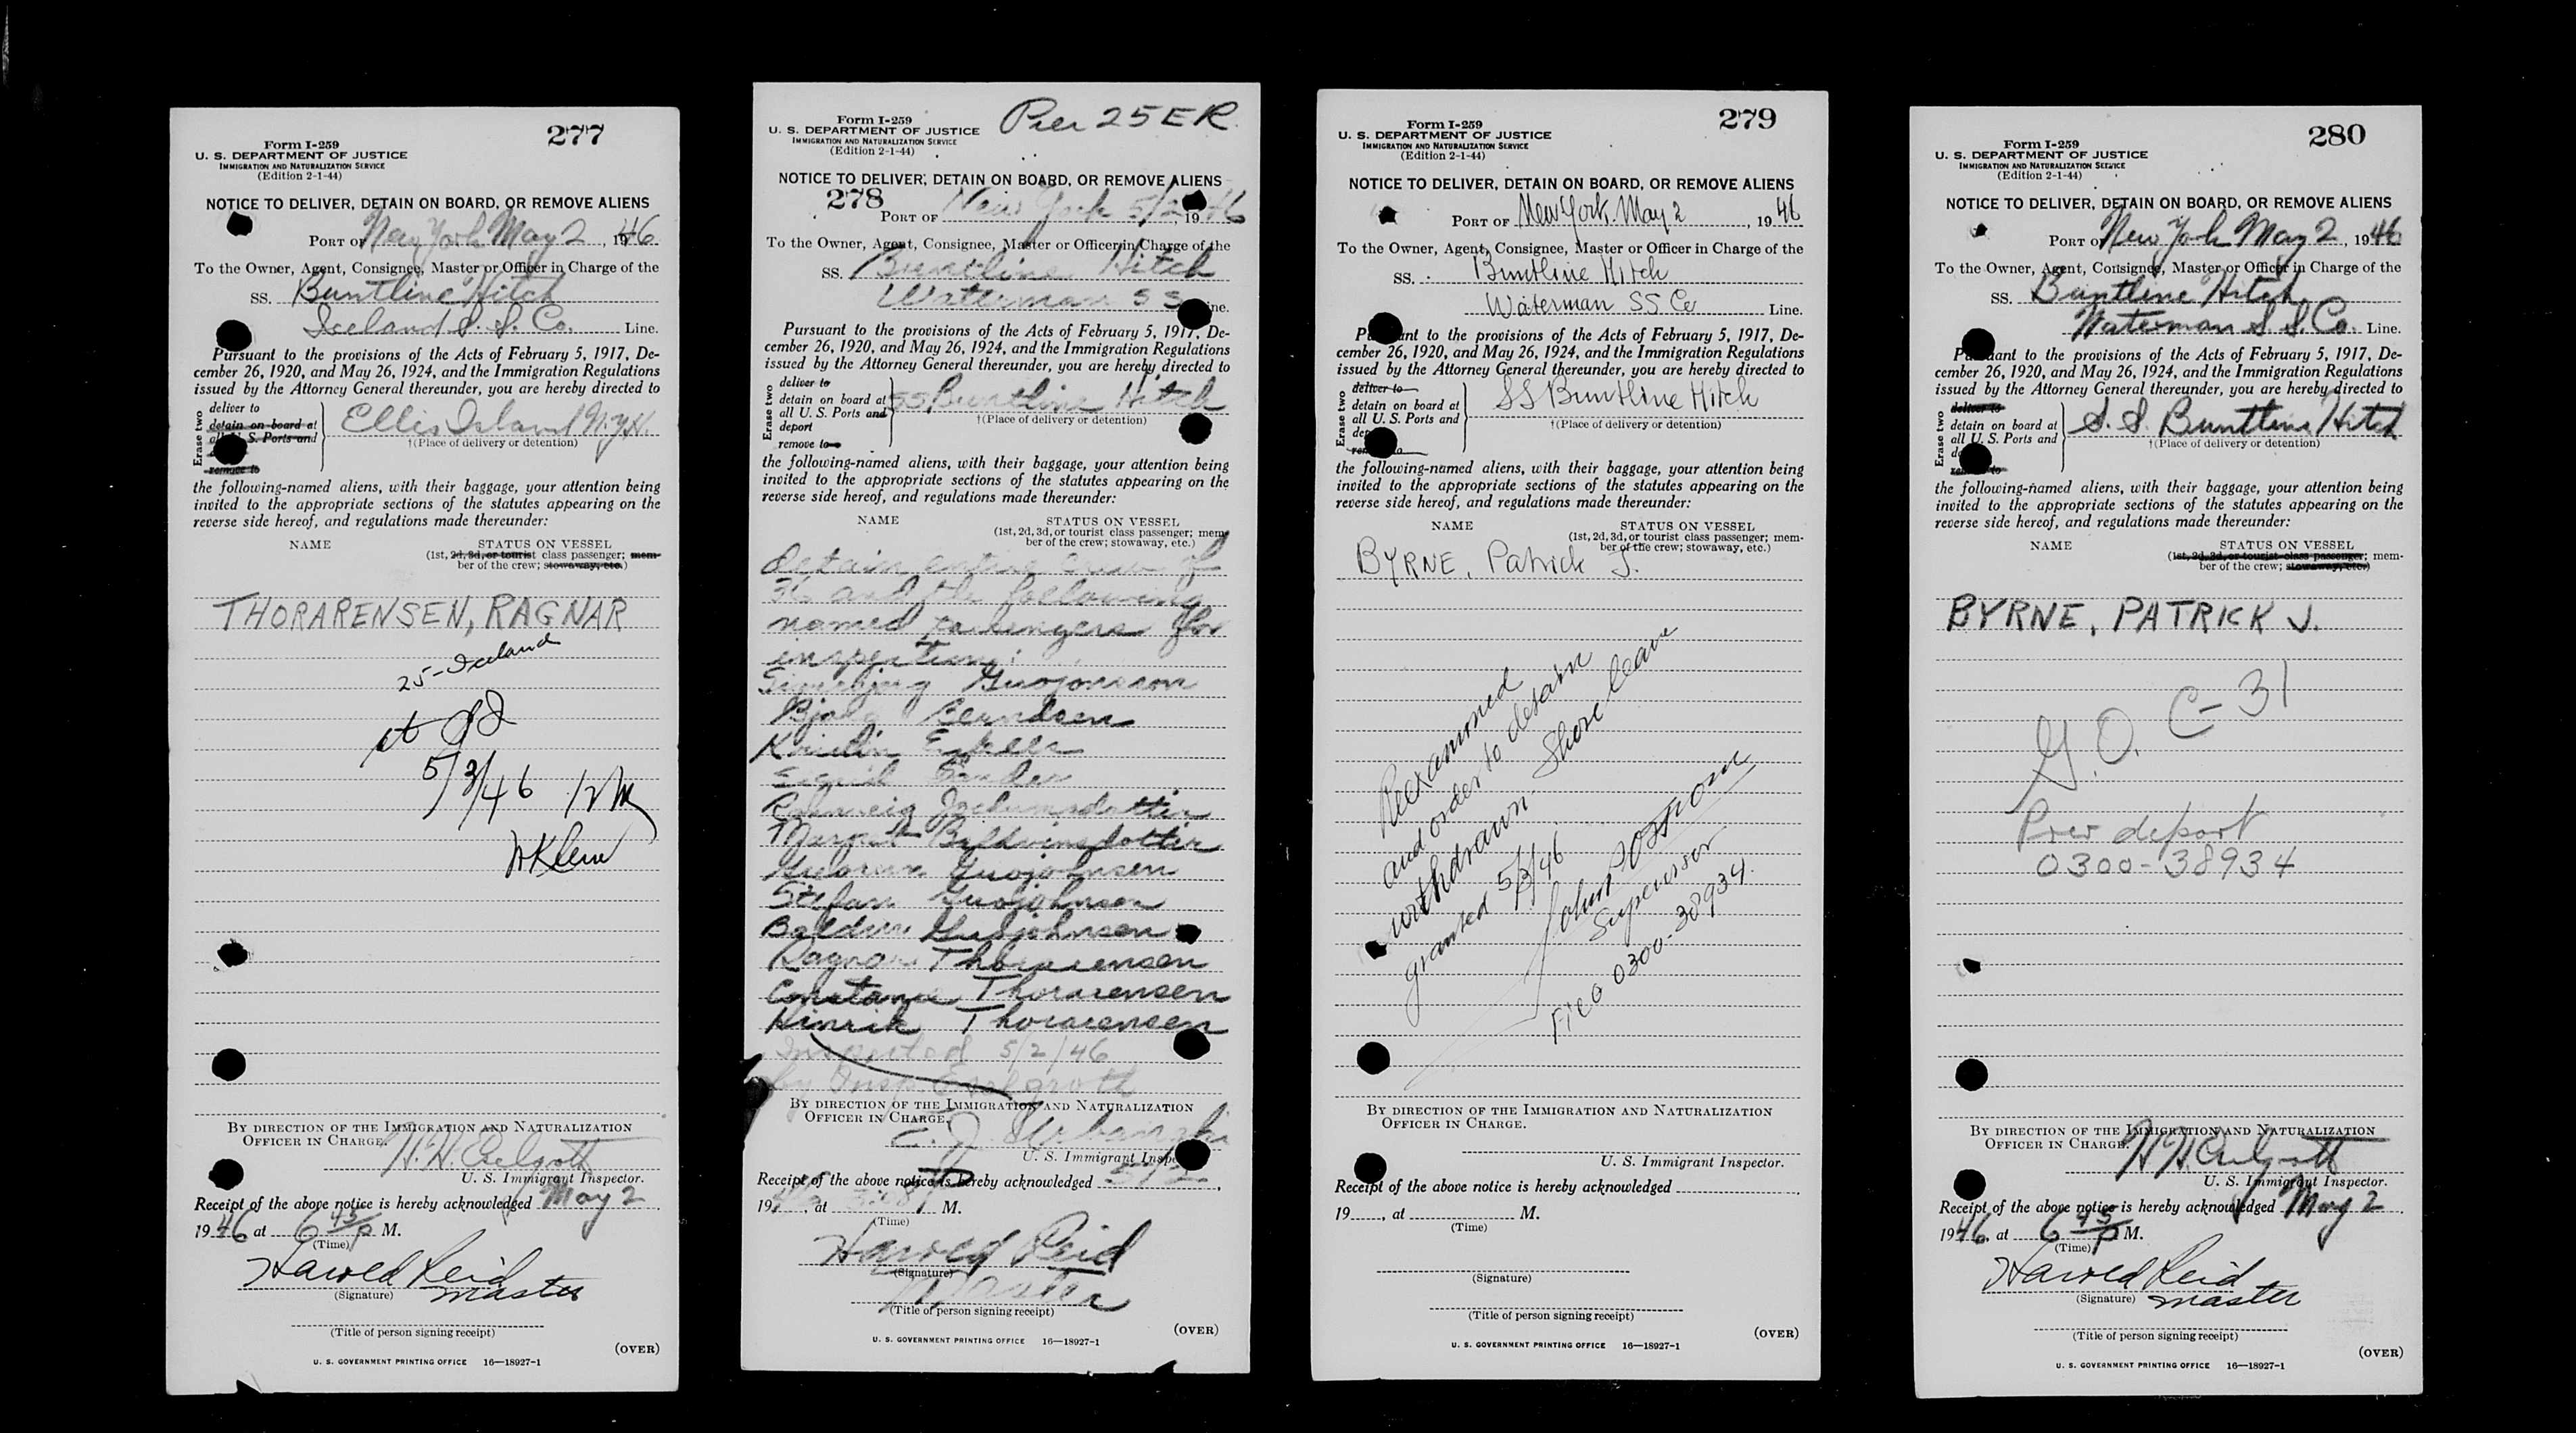 277
Form I-259
U. S. DEPARTMENT OF JUSTICE
IMMIGRATION AND NATURALIZATION SERVICE
(Edition 2-1-44)
NOTICE TO DELIVER, DETAIN ON BOARD, OR REMOVE ALIENS
PORT OF New York May 2, 1946
To the Owner, Agent, Consignee, Master or Officer in Charge of the
SS. Buntline Hitch
Iceland S. S. Co. Line.
Pursuant to the provisions of the Acts of February 5, 1917, De-
cember 26, 1920, and May 26, 1924, and the Immigration Regulations
issued by the Attorney General thereunder, you are hereby directed to
Erase two
deliver to
detain on board at
all U. S. Ports and
remove to
Ellis Island N.Y.H.
†(Place of delivery or detention)
the following-named aliens, with their baggage, your attention being
invited to the appropriate sections of the statutes appearing on the
reverse side hereof, and regulations made thereunder:
NAME STATUS ON VESSEL
(1st, 2d, 3d, or tourist class passenger; mem-
ber of the crew; stowaway, etc.)
THORARENSEN, RAGNAR
25-Iceland
5/3/46
BY DIRECTION OF THE IMMIGRATION AND NATURALIZATION
OFFICER IN CHARGE.
U. S. Immigrant Inspector.
Receipt of the above notice is hereby acknowledged May 2
1946 at 6 45 P M.
(Time)
Harold Reid
(Signature) master
(Title of person signing receipt)
(OVER)
U. S. GOVERNMENT PRINTING OFFICE 16—18927-1
Pier 25 E R.
Form I-259
U. S. DEPARTMENT OF JUSTICE
IMMIGRATION AND NATURALIZATION SERVICE
(Edition 2-1-44)
NOTICE TO DELIVER, DETAIN ON BOARD, OR REMOVE ALIENS
278
PORT OF New York 5/2, 1946
To the Owner, Agent, Consignee, Master or Officer in Charge of the
SS. Buntline Hitch
Waterman SS Line.
Pursuant to the provisions of the Acts of February 5, 1917, De-
cember 26, 1920, and May 26, 1924, and the Immigration Regulations
issued by the Attorney General thereunder, you are hereby directed to
Erase two
deliver to
detain on board at
all U. S. Ports and
deport
remove to
SS Buntline Hitch
†(Place of delivery or detention)
the following-named aliens, with their baggage, your attention being
invited to the appropriate sections of the statutes appearing on the
reverse side hereof, and regulations made thereunder:
NAME STATUS ON VESSEL
(1st, 2d, 3d, or tourist class passenger; mem-
ber of the crew; stowaway, etc.)
Detain entire crew of
36 and the following
named passengers for
inspection:
Guojonsson
Kristin
Jochumsdottir
Margret Baldvinsdottir
Guojohnsen
Stefan Guojohnsen
Baldvin Guojohnsen
Ragnar Thorarensen
Constance Thorarensen
Hinrik Thorarensen
Inspected 5/2/46
by Insp.
BY DIRECTION OF THE IMMIGRATION AND NATURALIZATION
OFFICER IN CHARGE.
U. S. Immigrant Inspector.
Receipt of the above notice is hereby acknowledged 5/2
19, at M.
(Time)
Harold Reid
(Signature)
Master
(Title of person signing receipt)
(OVER)
U. S. GOVERNMENT PRINTING OFFICE 16—18927-1
279
Form I-259
U. S. DEPARTMENT OF JUSTICE
IMMIGRATION AND NATURALIZATION SERVICE
(Edition 2-1-44)
NOTICE TO DELIVER, DETAIN ON BOARD, OR REMOVE ALIENS
PORT OF New York, May 2, 1946
To the Owner, Agent, Consignee, Master or Officer in Charge of the
SS. Buntline Hitch
Waterman SS Co Line.
Pursuant to the provisions of the Acts of February 5, 1917, De-
cember 26, 1920, and May 26, 1924, and the Immigration Regulations
issued by the Attorney General thereunder, you are hereby directed to
Erase two
deliver to
detain on board at
all U. S. Ports and
SS Buntline Hitch
†(Place of delivery or detention)
the following-named aliens, with their baggage, your attention being
invited to the appropriate sections of the statutes appearing on the
reverse side hereof, and regulations made thereunder:
NAME STATUS ON VESSEL
(1st, 2d, 3d, or tourist class passenger; mem-
ber of the crew; stowaway, etc.)
BYRNE, Patrick J.
Reexamined
and order to detain
withdrawn. Shore leave
granted 5/3/46
Supervisor
File 0300-38934
BY DIRECTION OF THE IMMIGRATION AND NATURALIZATION
OFFICER IN CHARGE.
U. S. Immigrant Inspector.
Receipt of the above notice is hereby acknowledged
19, at M.
(Time)
(Signature)
(Title of person signing receipt)
(OVER)
U. S. GOVERNMENT PRINTING OFFICE 16—18927-1
280
Form I-259
U. S. DEPARTMENT OF JUSTICE
IMMIGRATION AND NATURALIZATION SERVICE
(Edition 2-1-44)
NOTICE TO DELIVER, DETAIN ON BOARD, OR REMOVE ALIENS
PORT OF New York May 2, 1946
To the Owner, Agent, Consignee, Master or Officer in Charge of the
SS. Buntline Hitch
Waterman S. S. Co. Line.
Pursuant to the provisions of the Acts of February 5, 1917, De-
cember 26, 1920, and May 26, 1924, and the Immigration Regulations
issued by the Attorney General thereunder, you are hereby directed to
Erase two
deliver to
detain on board at
all U. S. Ports and
S. S. Buntline Hitch
†(Place of delivery or detention)
the following-named aliens, with their baggage, your attention being
invited to the appropriate sections of the statutes appearing on the
reverse side hereof, and regulations made thereunder:
NAME STATUS ON VESSEL
(1st, 2d, 3d, or tourist class passenger; mem-
ber of the crew; stowaway, etc.)
BYRNE, PATRICK J.
G.O. C-31
Prev deport
0300-38934
BY DIRECTION OF THE IMMIGRATION AND NATURALIZATION
OFFICER IN CHARGE.
U. S. Immigrant Inspector.
Receipt of the above notice is hereby acknowledged May 2
1946, at 6 45 P M.
(Time)
Harold Reid
(Signature) master
(Title of person signing receipt)
(OVER)
U. S. GOVERNMENT PRINTING OFFICE 16—18927-1